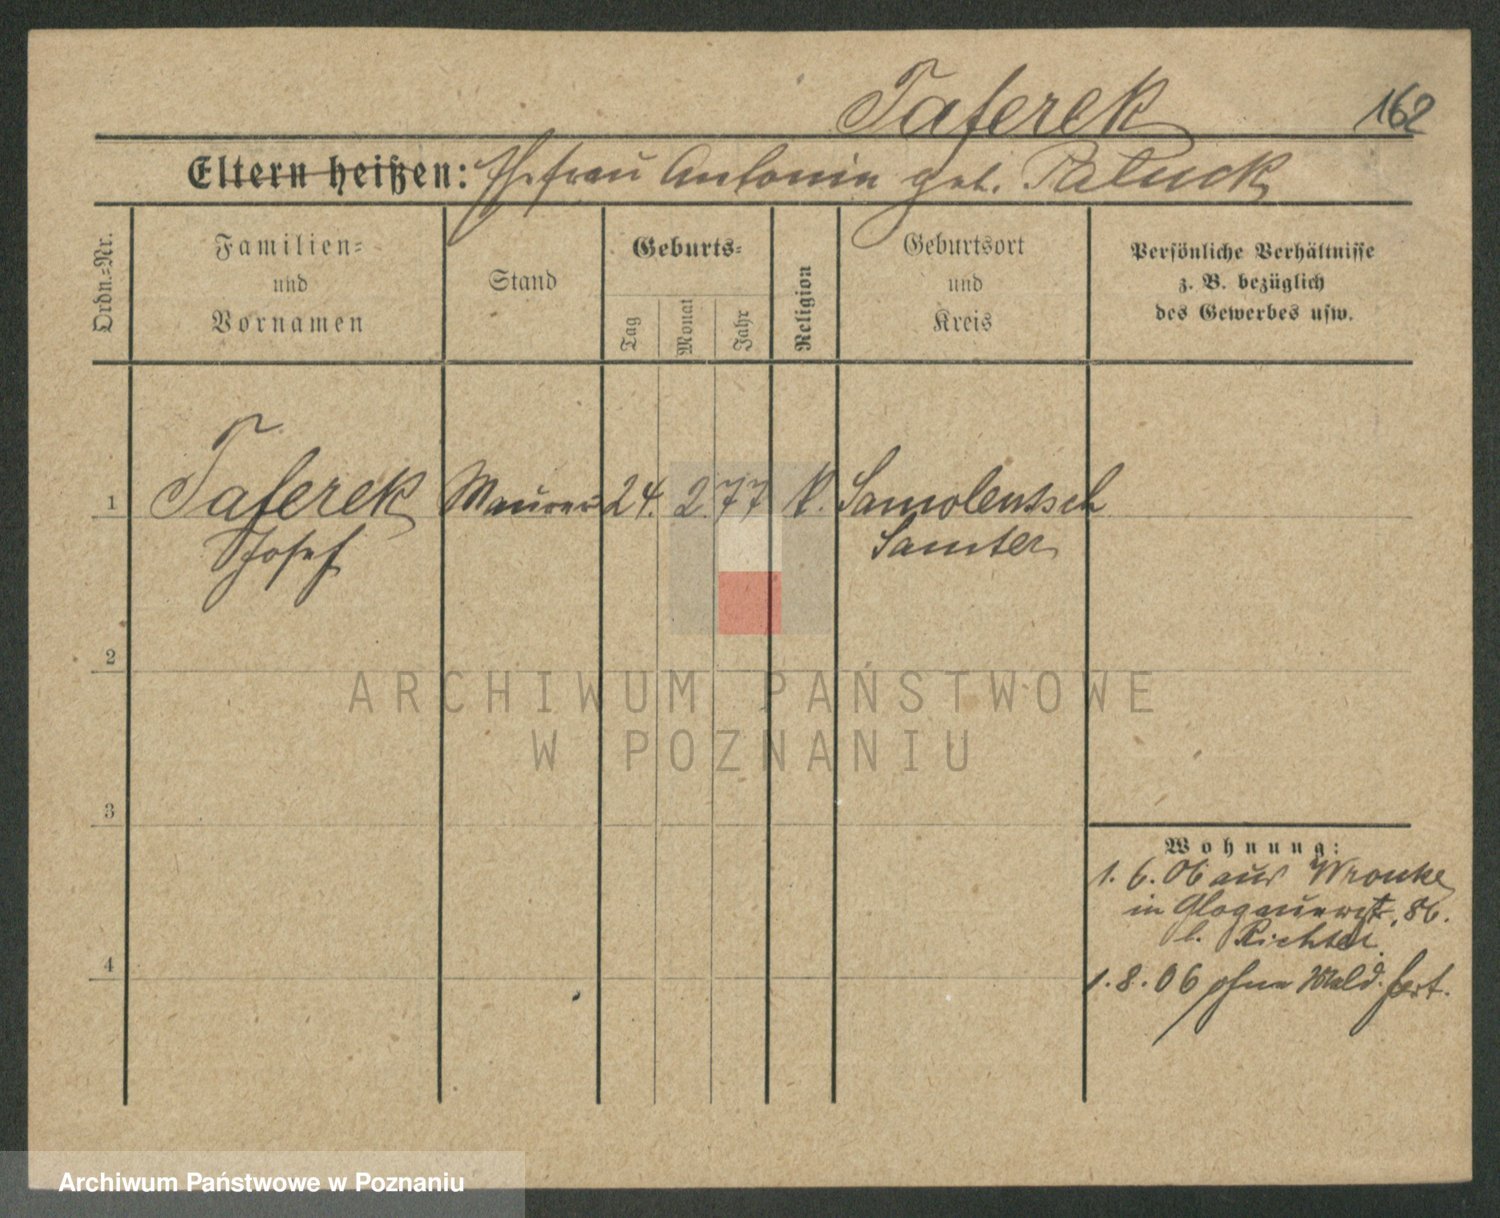 Taferek 162
Eltern heißen: Ehefrau Antonin geb. Ratuck
Ordn.-Nr.
Familien-
und
Vornamen
Stand
Geburts-
Tag
Monat
Jahr
Religion
Geburtsort
und
Kreis
Persönliche Verhältnisse
z. B. bezüglich
des Gewerbes usw.
1 Taferek Maurer 24. 2. 77 k. Samolensch
Josef Samter
2
3
4
Wohnung:
1. 6. 06 aus Wronke
in Glogauerst. 86.
b. Richter.
1. 8. 06 ohne Meld. fort.
ARCHIWUM PAŃSTWOWE
W POZNANIU
Archiwum Państwowe w Poznaniu